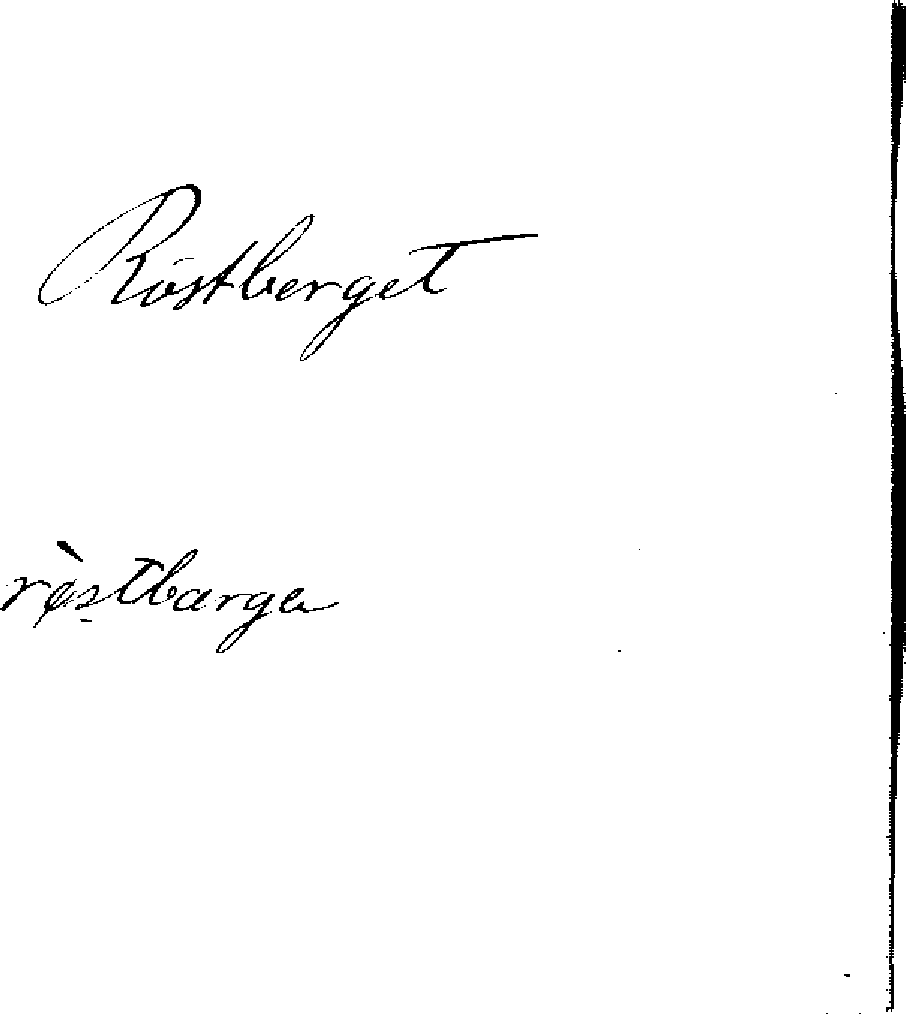 Röstberget
rø̀stbærge